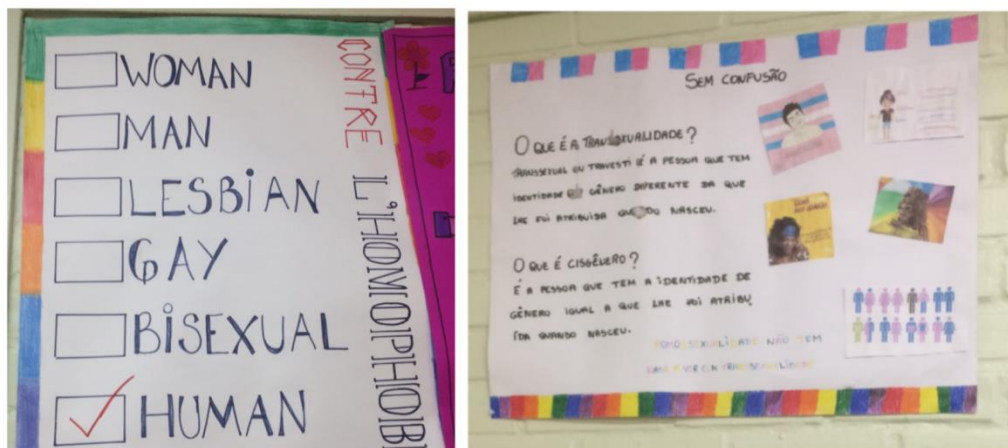 WOMAN
MAN
LESBIAN
GAY
BISEXUAL
HUMAN
CONTRE L'HOMOPHOB
SEM CONFUSÃO
O QUE É A TRANSEXUALIDADE?
TRANSSEXUAL OU TRAVESTI É A PESSOA QUE TEM
IDENTIDADE DE GÊNERO DIFERENTE DA QUE
LHE FOI ATRIBUIDA QUANDO NASCEU.
O QUE É CISGÊNERO?
É A PESSOA QUE TEM A IDENTIDADE DE
GÊNERO IGUAL A QUE LHE FOI ATRIBU
IDA QUANDO NASCEU.
HOMOSEXUALIDADE NÃO TEM
NADA A VER COM TRANSEXUALIDADE